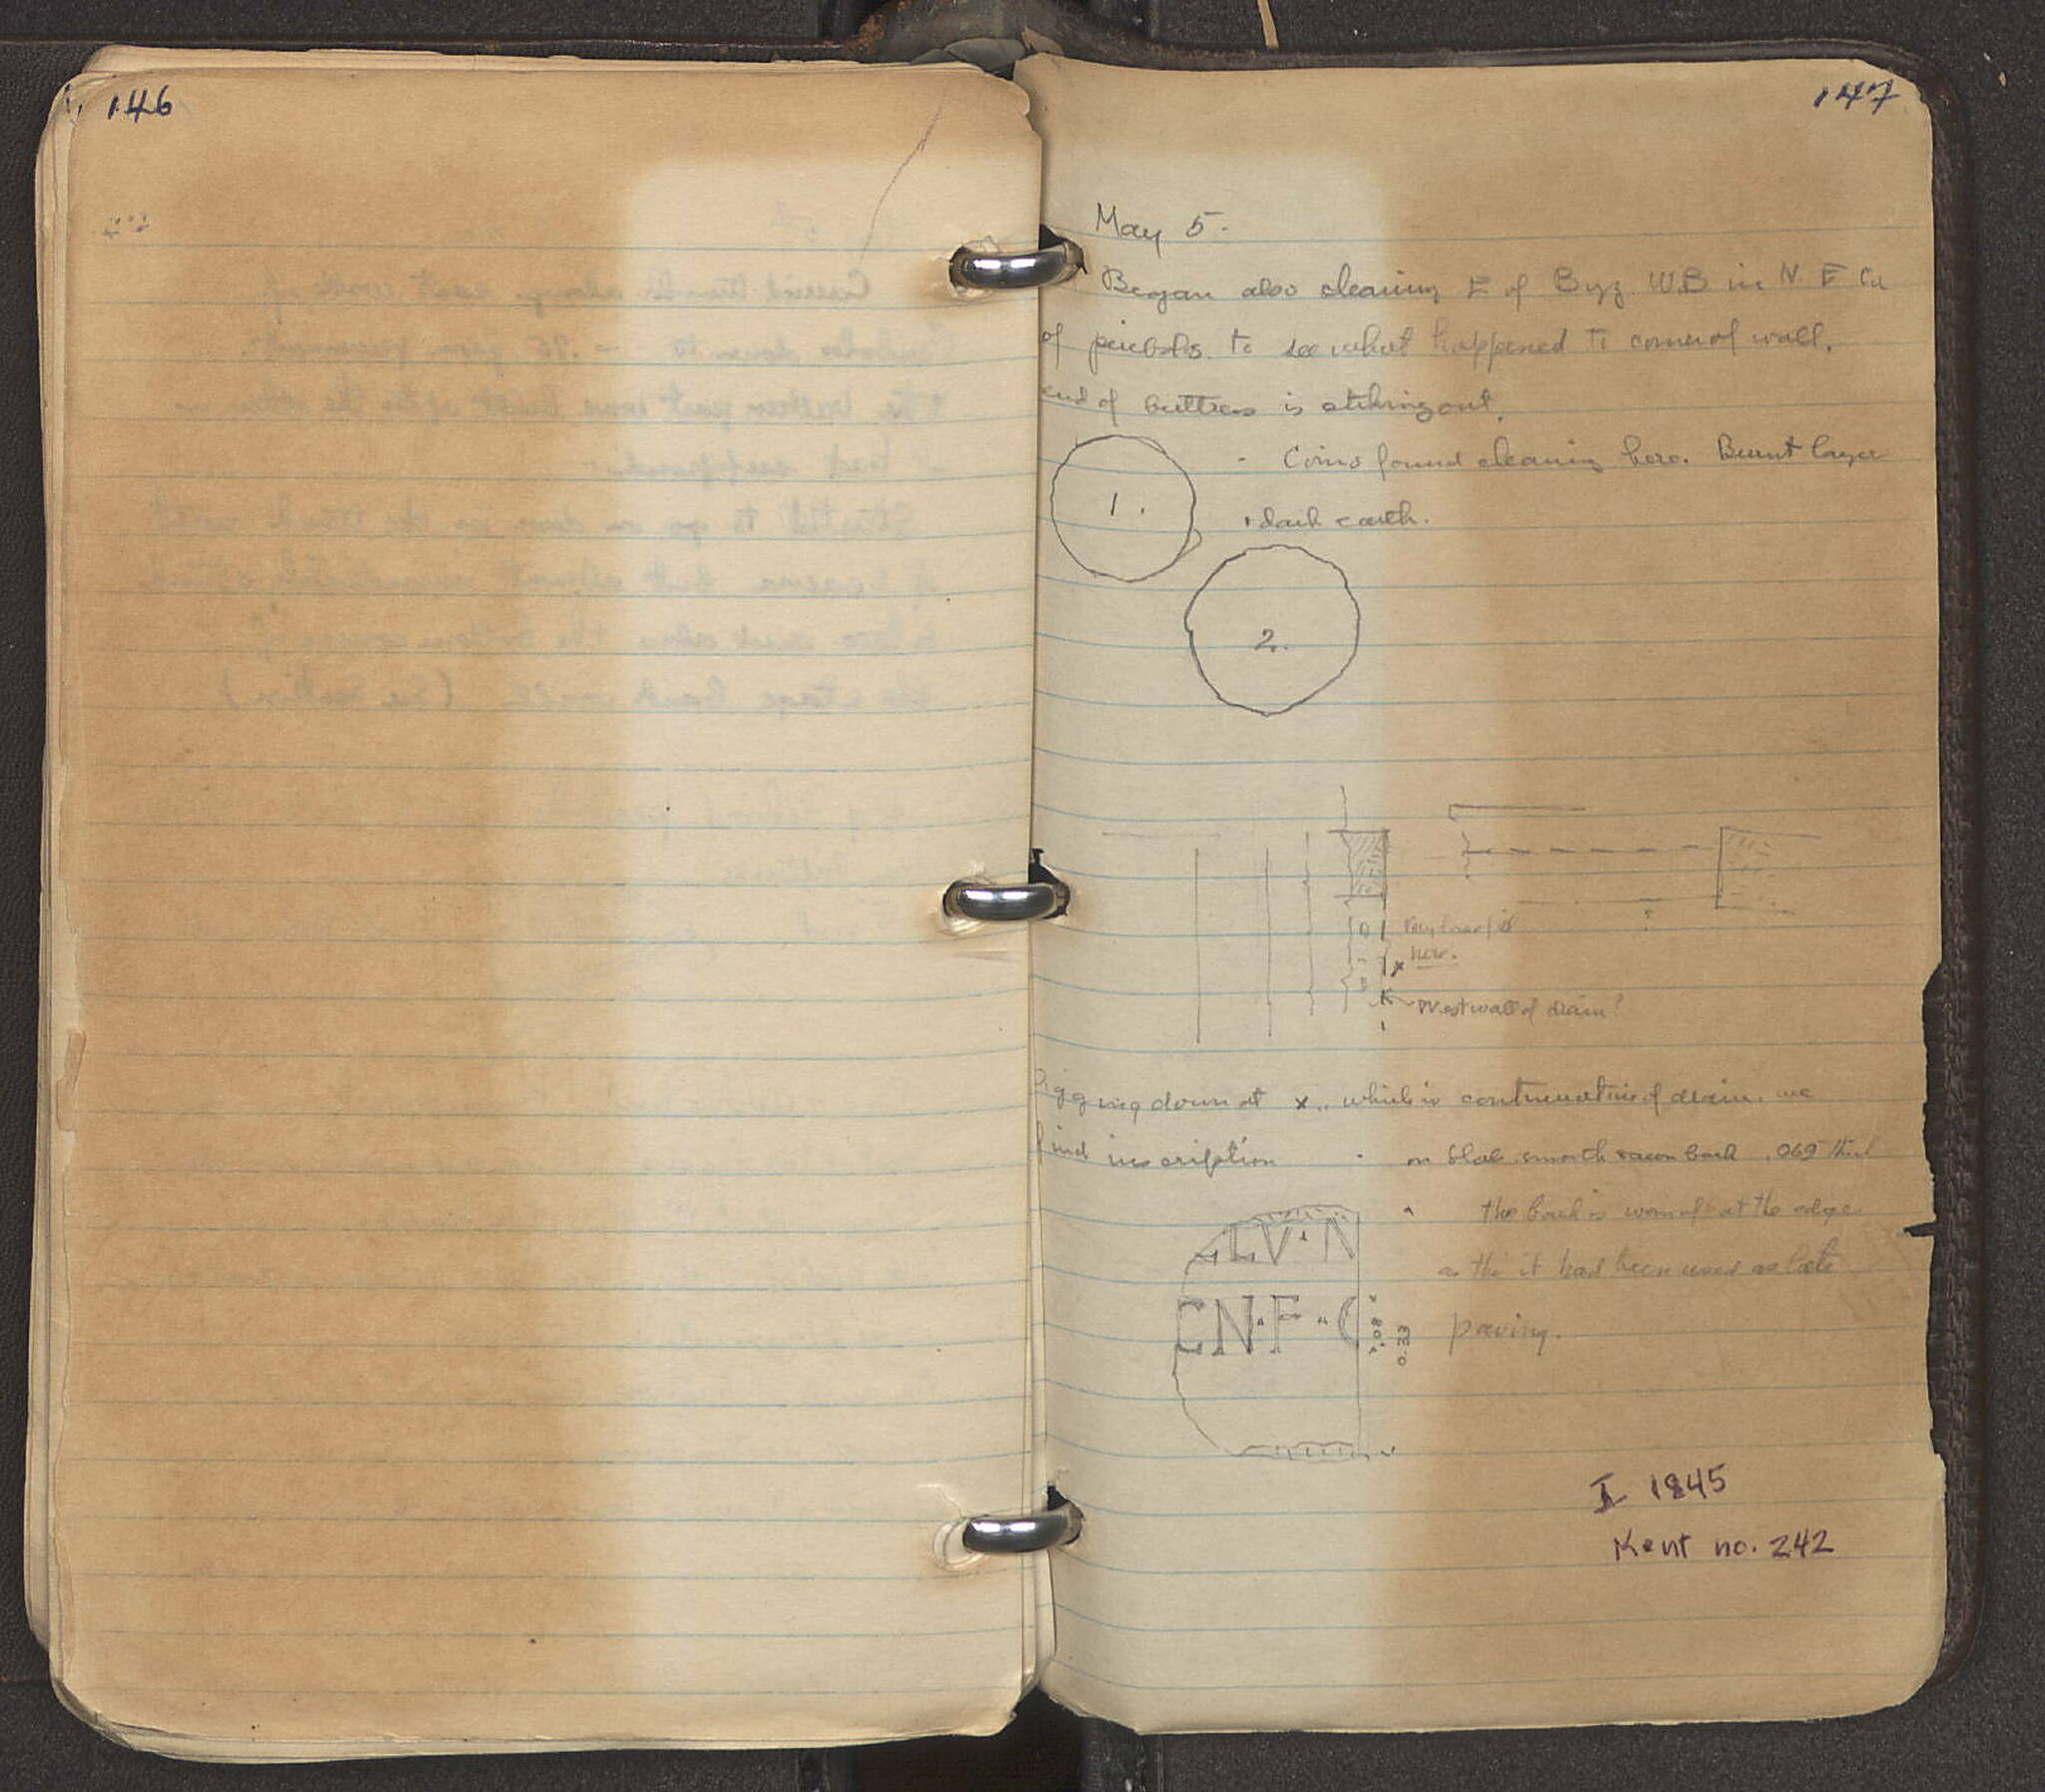 146
147
May 5.
Began also cleaning E of Byz. W.B in N. E Co
of peribolos. to see what happened to corner of wall.
end of buttress is sticking out.
1.
- Coins found cleaning here. Burnt layer
+ dark earth.
2.
here.
x
West wall of drain?
Digging down at x, which is continuation of drain. we
find inscription - on slab smooth back .069 thick
the back is worn off at the edge.
as tho it had been used as late
paving.
LV·N
CN·F·C
.08
0.33
I 1845
Kent no. 242